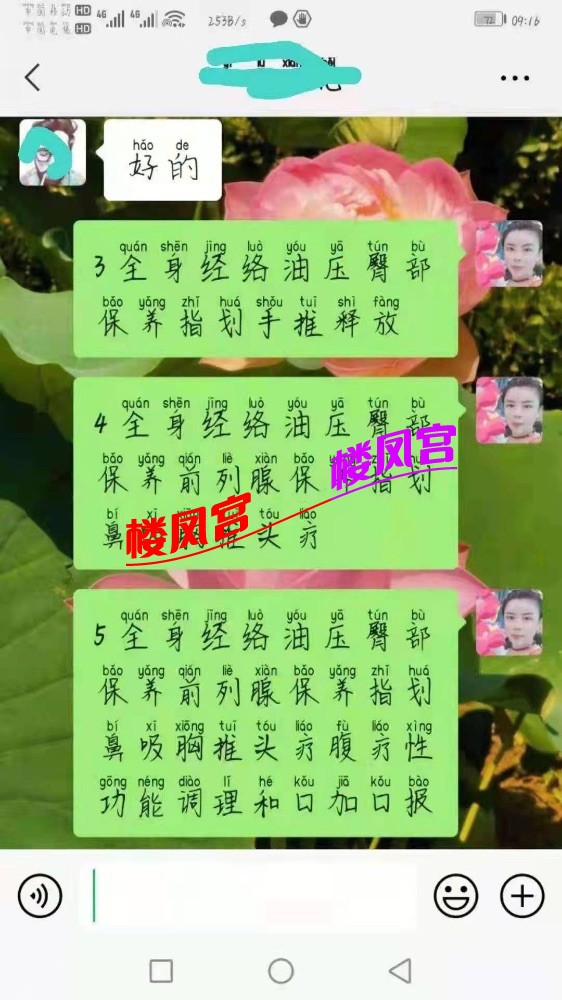 253B/s
72
09:16
hǎo de
好的
quán shēn jīng luò yóu yā tún bù
3全身经络油压臀部
bǎo yǎng zhǐ huá shǒu tuī shì fàng
保养指划手推释放
quán shēn jīng luò yóu yā tún bù
4全身经络油压臀部
bǎo yǎng qián liè xiàn bǎo
保养前列腺保养指划
bí xī tóu liáo
鼻吸胸推头疗
楼凤宫
楼凤宫
quán shēn jīng luò yóu yā tún bù
5全身经络油压臀部
bǎo yǎng qián liè xiàn bǎo yǎng zhǐ huá
保养前列腺保养指划
bí xī xiōng tuī tóu liáo fù liáo xìng
鼻吸胸推头疗腹疗性
gōng néng diào lǐ hé kǒu jiā kǒu bào
功能调理和口加口报